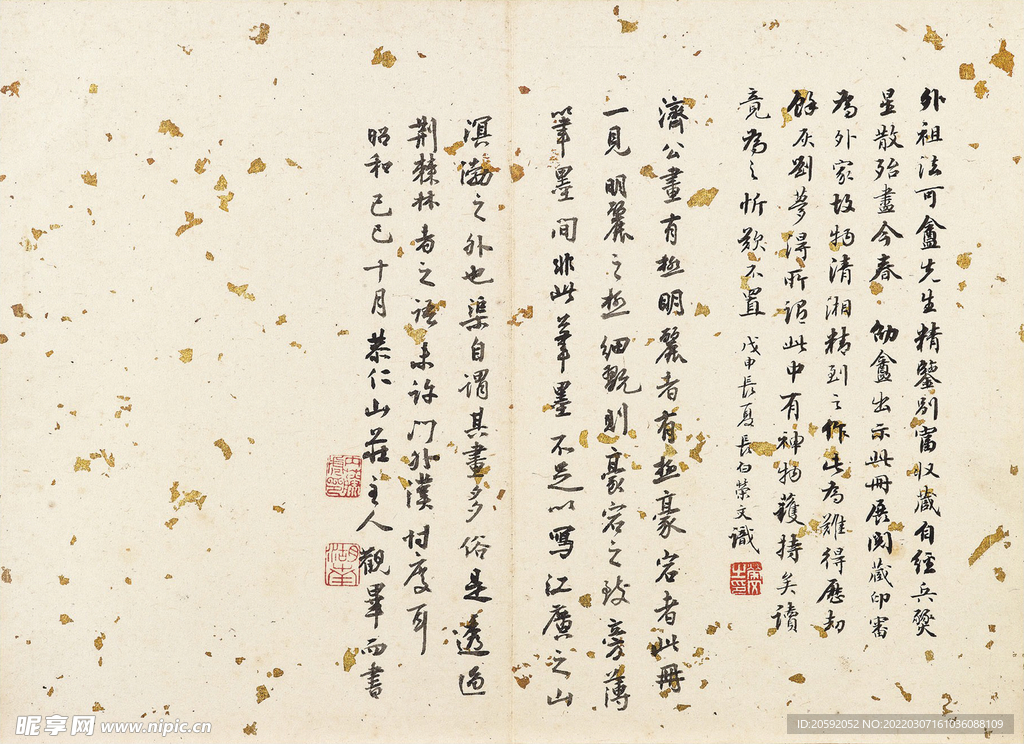 外祖法可盦先生精鑒別富收藏自經兵燹
星散殆盡今春 劬盦出示此冊展閱藏印審
為外家故物清湘精到之作此為難得歷劫
餘灰劉夢得所謂此中有神物護持矣讀
竟為之忻歎不置 戊申長夏長白榮文識
濟公畫有極明麗者有極豪宕者此冊
一見明麗之極細翫則豪宕之致旁薄
筆墨間非此筆墨不足以寫江廣之山
溟渤之外也渠自謂其畫多俗是透過
荆棘林者之語未許門外漢忖度耳
昭和己巳十月恭仁山莊主人觀畢而書
昵享网 www.nipic.cn
ID:20592052 NO:20220307161036088109